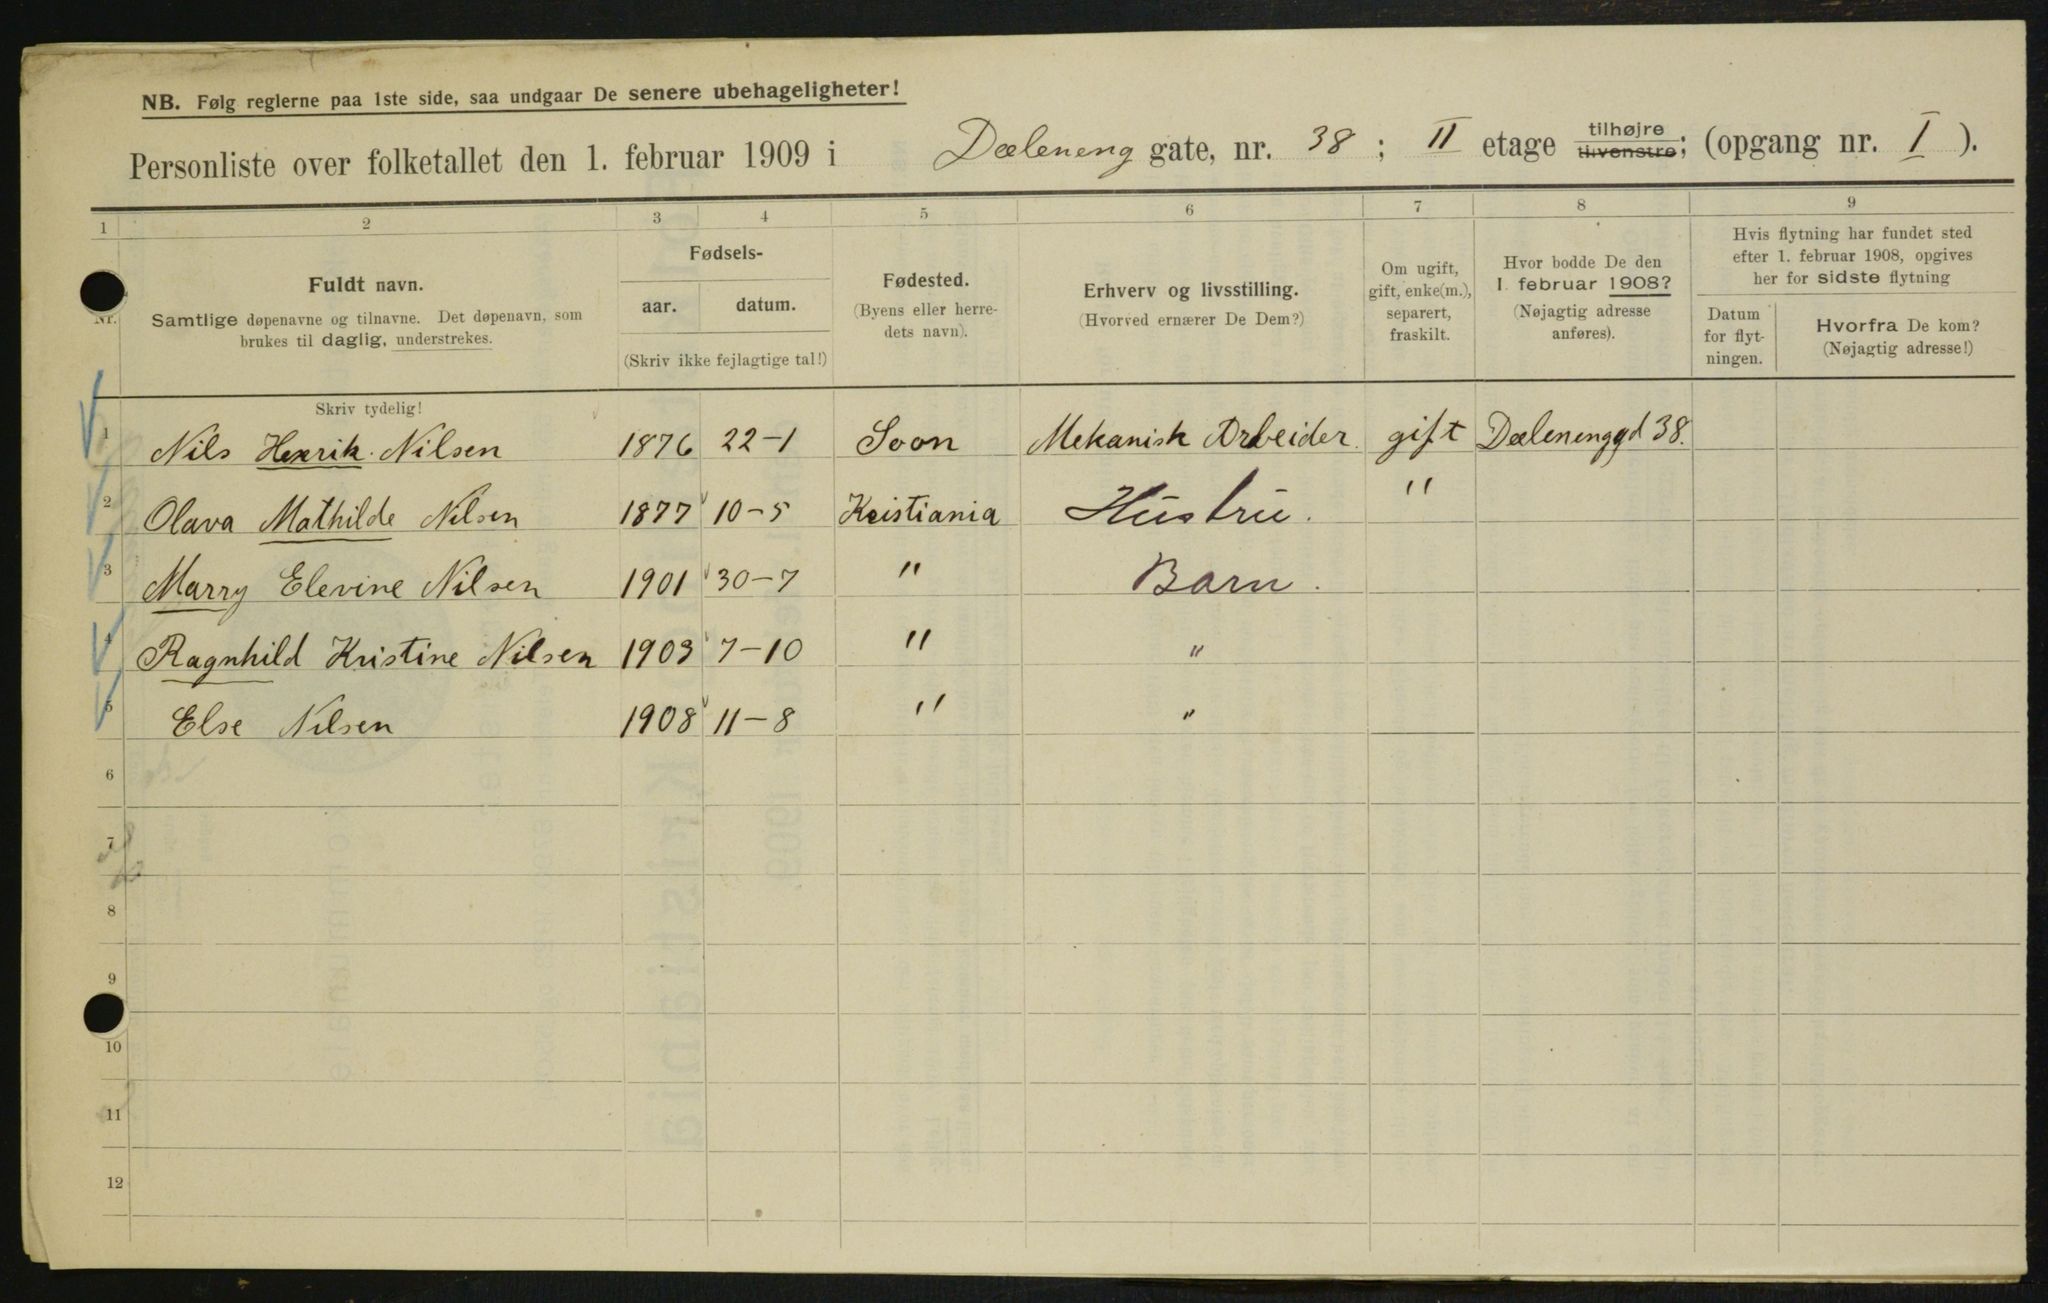 NB. Følg reglerne paa 1ste side, saa undgaar De senere ubehageligheter!
Personliste over folketallet den 1. februar 1909 i Dæleneng gate, nr. 38 ; II etage tilhøjre tilvenstre; (opgang nr. I ).
1 2 3 4 5 6 7 8 9
Nr.
Fuldt navn.
Samtlige døpenavne og tilnavne. Det døpenavn, som
brukes til daglig, understrekes.
Skriv tydelig!
Fødsels-
aar. datum.
(Skriv ikke fejlagtige tal!)
Fødested.
(Byens eller herre-
dets navn).
Erhverv og livsstilling.
(Hvorved ernærer De Dem?)
Om ugift,
gift, enke(m.),
separert,
fraskilt.
Hvor bodde De den
1. februar 1908?
(Nøjagtig adresse
anføres).
Hvis flytning har fundet sted
efter 1. februar 1908, opgives
her for sidste flytning
Datum
for flyt-
ningen.
Hvorfra De kom?
(Nøjagtig adresse!)
1 Nils Henrik Nilsen 1876 22-1 Soon Mekanisk Arbeider. gift Dælenenggd 38.
2 Olava Mathilde Nilsen 1877 10-5 Kristiania Hustru. "
3 Marry Elevine Nilsen 1901 30-7 " Barn.
4 Ragnhild Kristine Nilsen 1903 7-10 " "
5 Else Nilsen 1908 11-8 " "
6
7
8
9
10
11
12